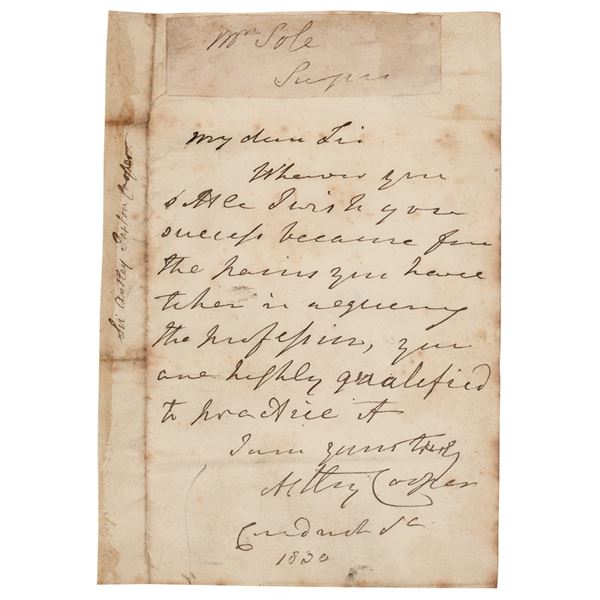 Mr Sole
My dear Sir
Wherever you
settle I wish you
success because from
the pains you have
taken in acquiring
the profession, you
are highly qualified
to practice it
I am yours truly
Astley Cooper
Conduit St
1830
Sir Astley Paston Cooper